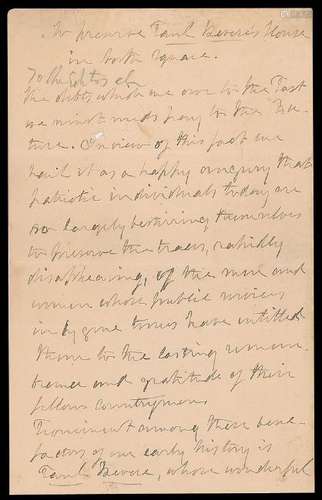 To preserve Paul Revere's House
in North Square.
To the Editor
The debts which we owe to the Past
we must needs pay to the Fu-
ture. In view of this fact we
hail it as a happy augury that
patriotic individuals today are
so largely bestirring themselves
to preserve the traces, rapidly
disappearing, of the men and
women whose public services
in by gone times have entitled
them to the lasting remem-
brance and gratitude of their
fellow countrymen.
Prominent among these bene-
factors of our early history is
Paul Revere, whose wonderful